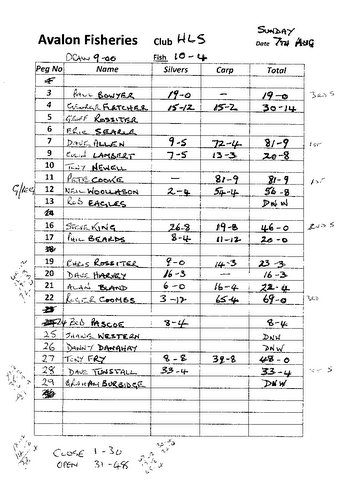 SUNDAY
Avalon Fisheries Club HLS Date 7TH AUG
DRAW 9-00 Fish 10-4
Peg No Name Silvers Carp Total
3 PAUL BOWYER 19-0 — 19-0 3RD S
4 GEORGE FLETCHER 15-12 15-2 30-14
5 GEOFF ROSSITER
6 ERIC SEARLE
7 DAVE ALLEN 9-5 72-4 81-9 1ST
9 COLIN LAMBERT 7-5 13-3 20-8
10 TONY NEWELL
11 PETE COOKE — 81-9 81-9 1ST
12 NEIL WOOLLASON 2-4 54-4 56-8
13 ROB EAGLES DNW
16 STEVE KING 26-8 19-8 46-0 2ND S
17 PHIL BEARDS 8-4 11-12 20-0
19 CHRIS ROSSITER 9-0 14-3 23-3
20 DAVE HARVEY 16-3 — 16-3
21 ALAN BLAND 6-0 16-4 22-4
22 ROGER COOMBS 3-12 65-4 69-0 3RD
24 ROB PASCOE 8-4 8-4
25 JHANG WESTERN DNW
26 DANNY DANAHAY DNW
27 TONY FRY 8-8 39-8 48-0
28 DAVE TUNSTALL 33-4 33-4
29 GRAHAM BURBIDGE DNW
CLOSE 1-30
OPEN 31-48